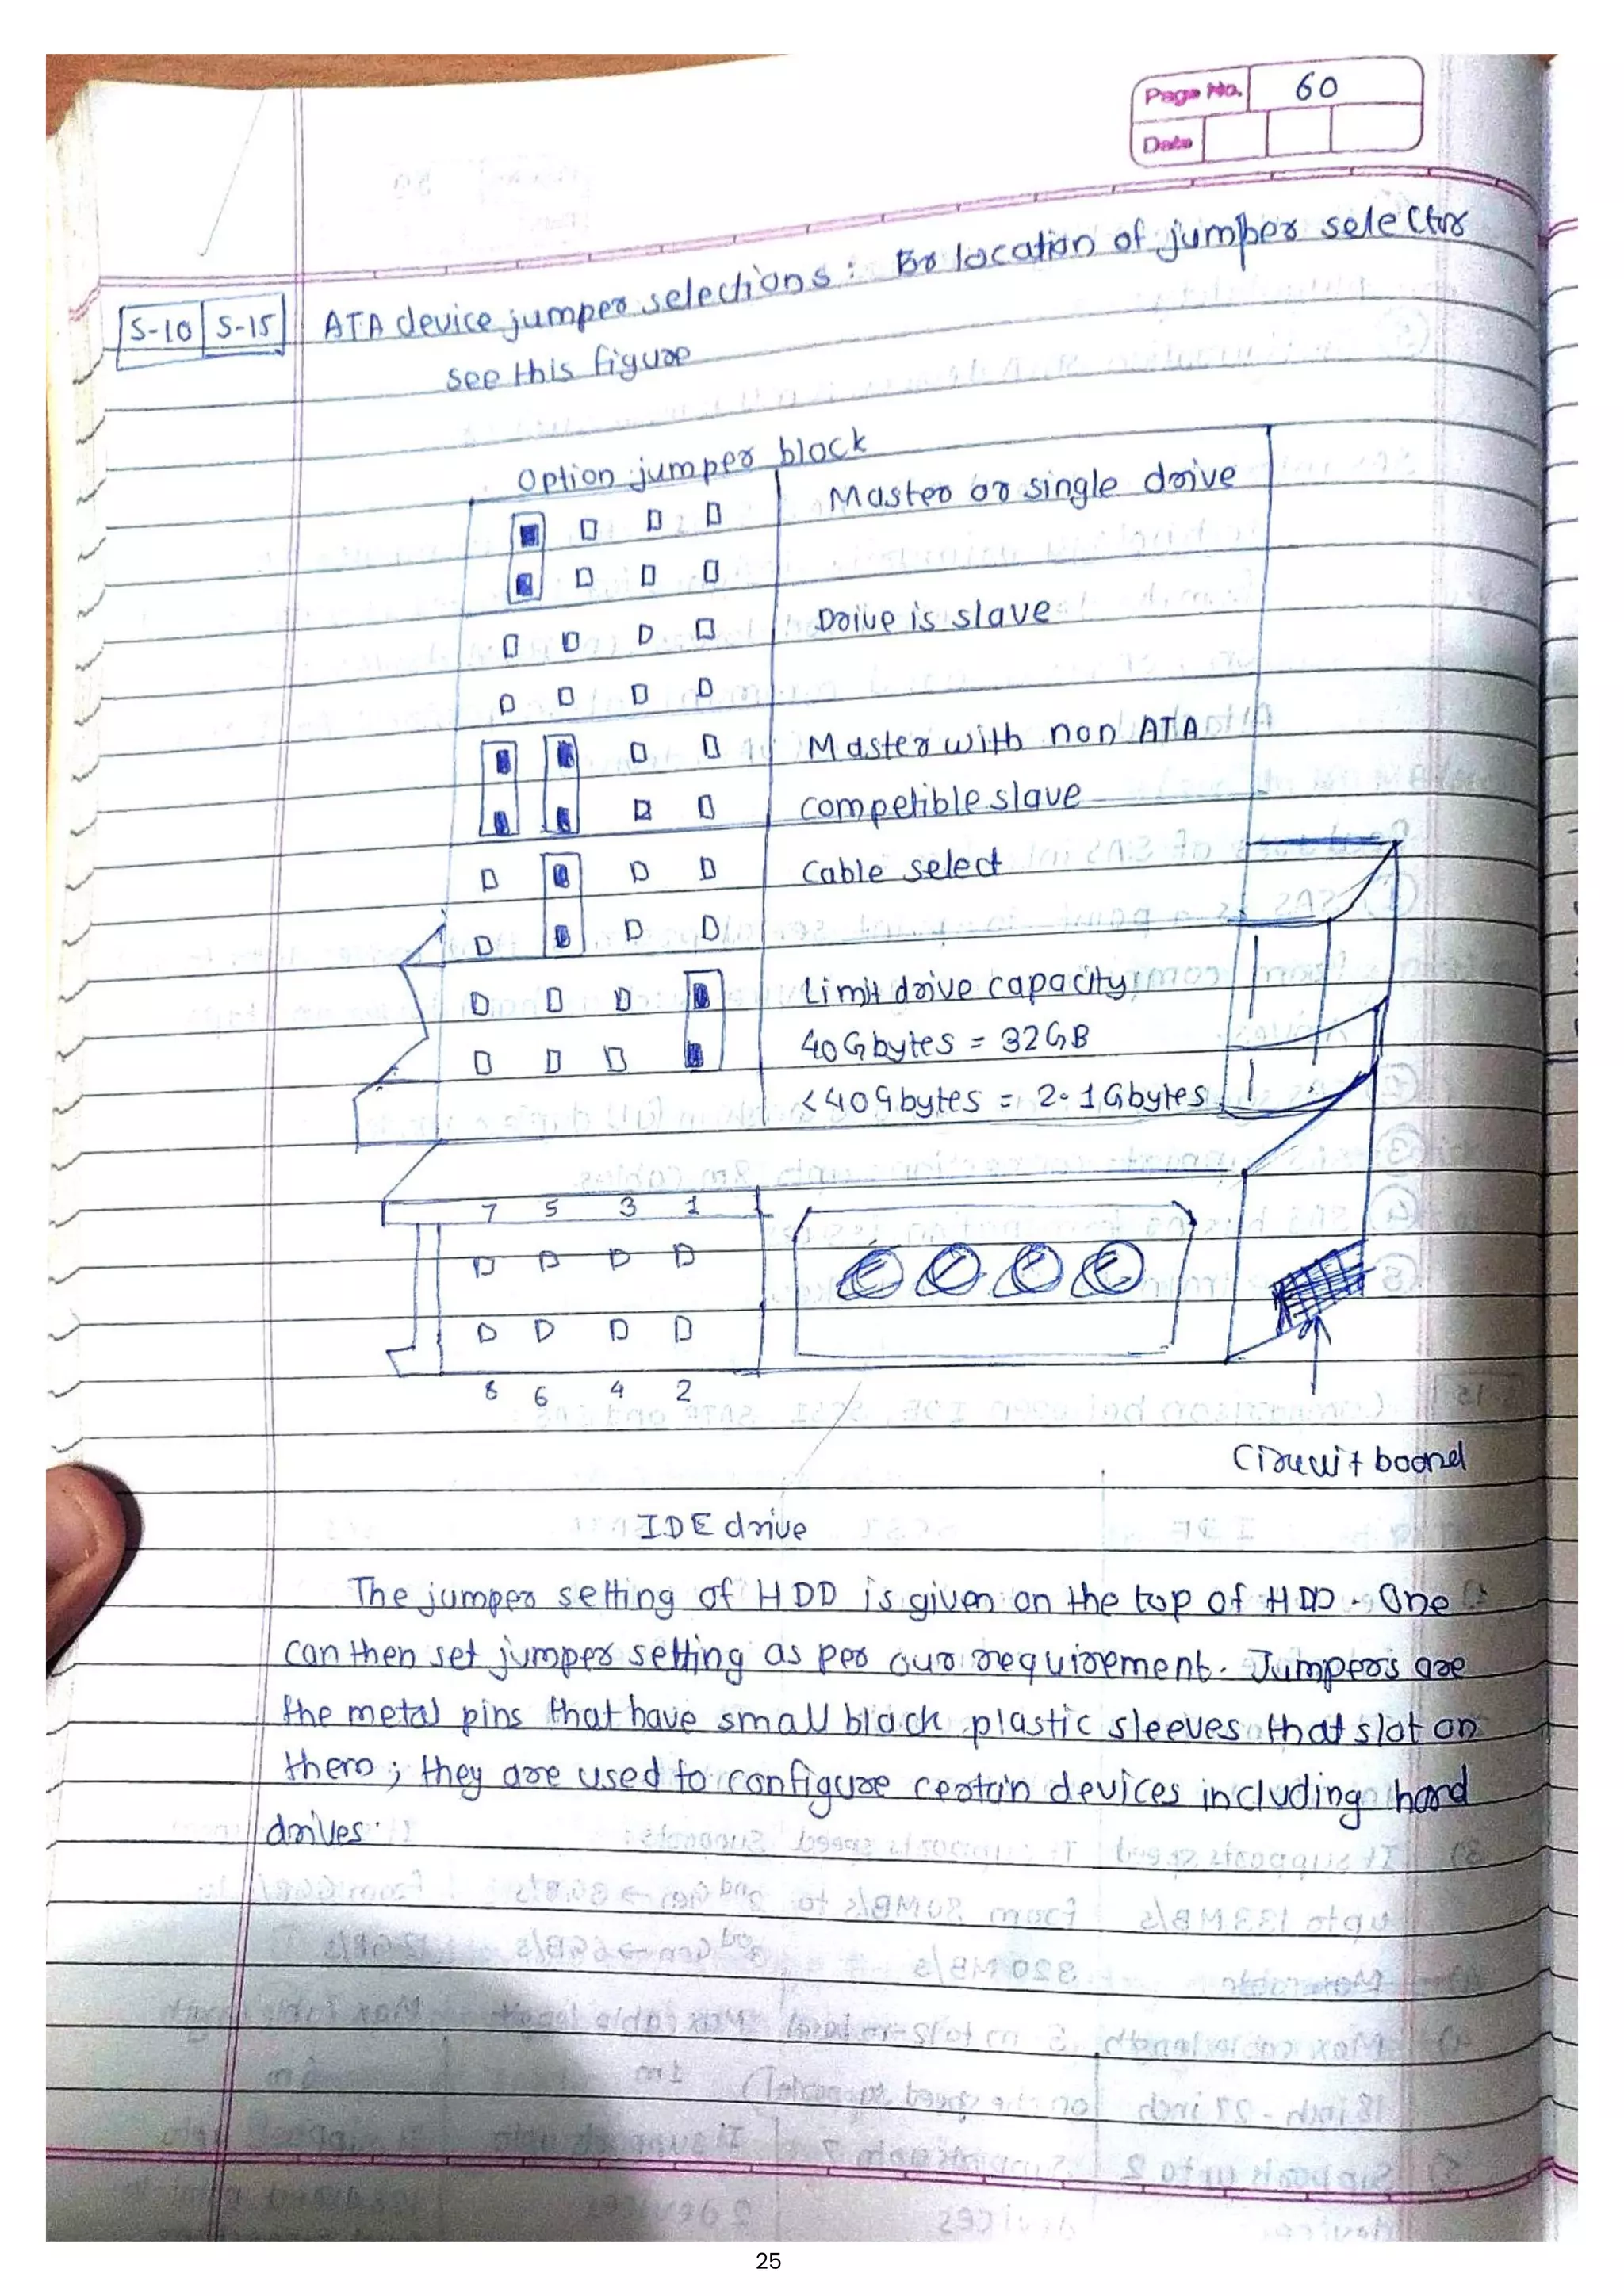 Page No. 60
Date
S-10 S-15 ATA device jumper selections: For location of jumper selector
see this figure
Option jumper block
Master or single drive
Drive is slave
Master with non ATA
competible slave
Cable select
Limit drive capacity
40 Gbytes = 32GB
<40 Gbytes = 2.1 Gbytes
7 5 3 1
8 6 4 2
Circuit board
IDE drive
The jumper setting of HDD is given on the top of HDD. One
can then set jumper setting as per our requirement. Jumpers are
the metal pins that have small black plastic sleeves that slot on
them; they are used to configure certain devices including hard
drives.
25